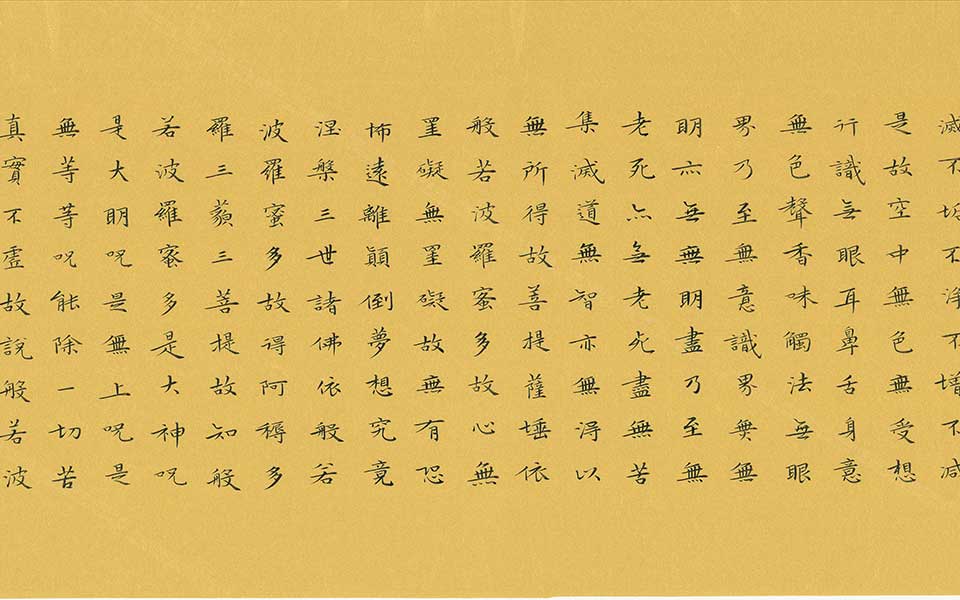 滅不垢不淨不增不減
是故空中無色無受想
行識無眼耳鼻舌身意
無色聲香味觸法無眼
界乃至無意識界無無
明亦無無明盡乃至無
老死亦無老死盡無苦
集滅道無智亦無得以
無所得故菩提薩埵依
般若波羅蜜多故心無
罣礙無罣礙故無有恐
怖遠離顛倒夢想究竟
涅槃三世諸佛依般若
波羅蜜多故得阿耨多
羅三藐三菩提故知般
若波羅蜜多是大神呪
是大明呪是無上呪是
無等等呪能除一切苦
真實不虛故說般若波